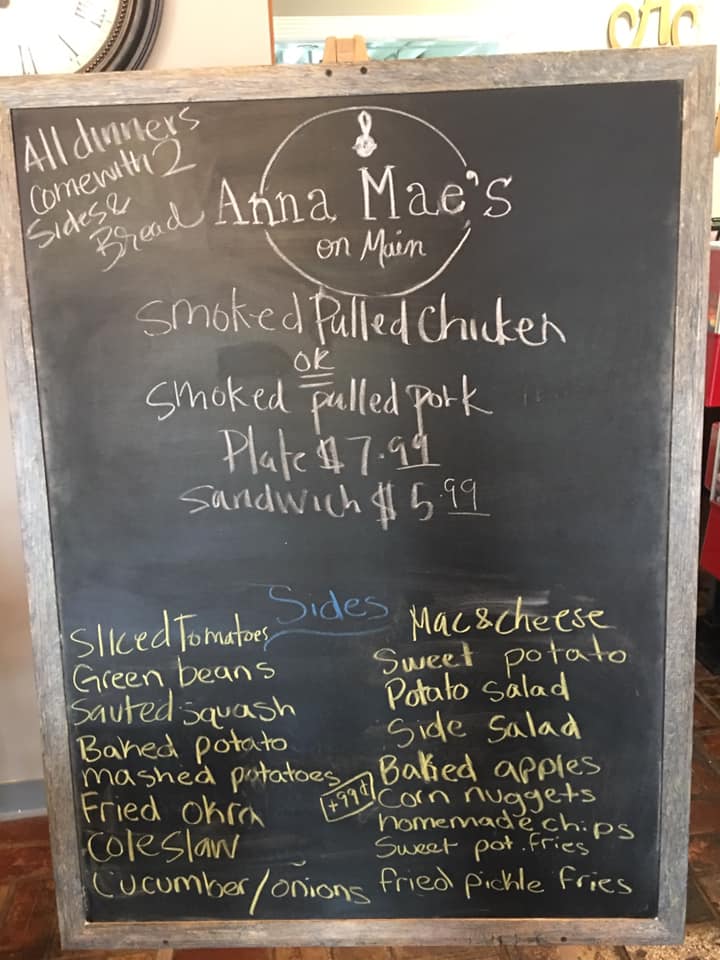 All dinners
come with 2
Sides &
Bread
Anna Mae's
on Main
Smoked Pulled Chicken
OR
Smoked pulled pork
Plate $7.99
Sandwich $5.99
Sides
Sliced Tomatoes
Green beans
Sauted squash
Baked potato
mashed potatoes
Fried Okra
Coleslaw
Cucumber/onions
Mac & cheese
Sweet potato
Potato salad
Side Salad
Baked apples
+99¢
Corn nuggets
homemade chips
Sweet pot. fries
fried pickle fries